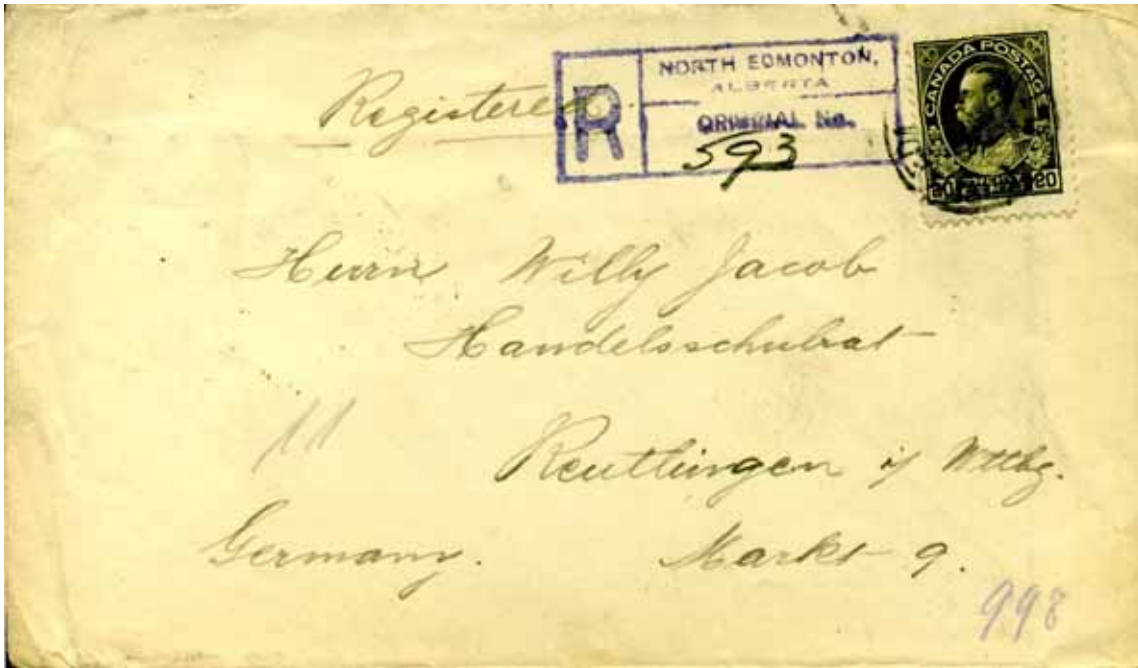 Registered
R
NORTH EDMONTON,
ALBERTA
ORIGINAL No.
593
CANADA POSTAGE
20 20
Herrn Willy Jacob
Handelsschulrat
Reutlingen i/ Wttbg.
Germany. Markt 9.
11
998